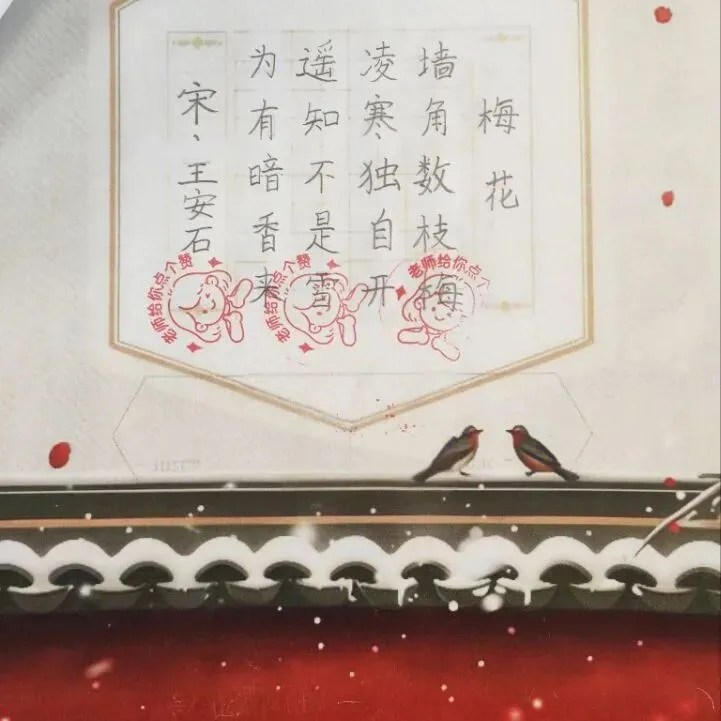 梅花
墙角数枝梅
凌寒、独自开
遥知不是雪
为有暗香来
宋、王安石
老师给你点个赞
老师给你点个赞
老师给你点个